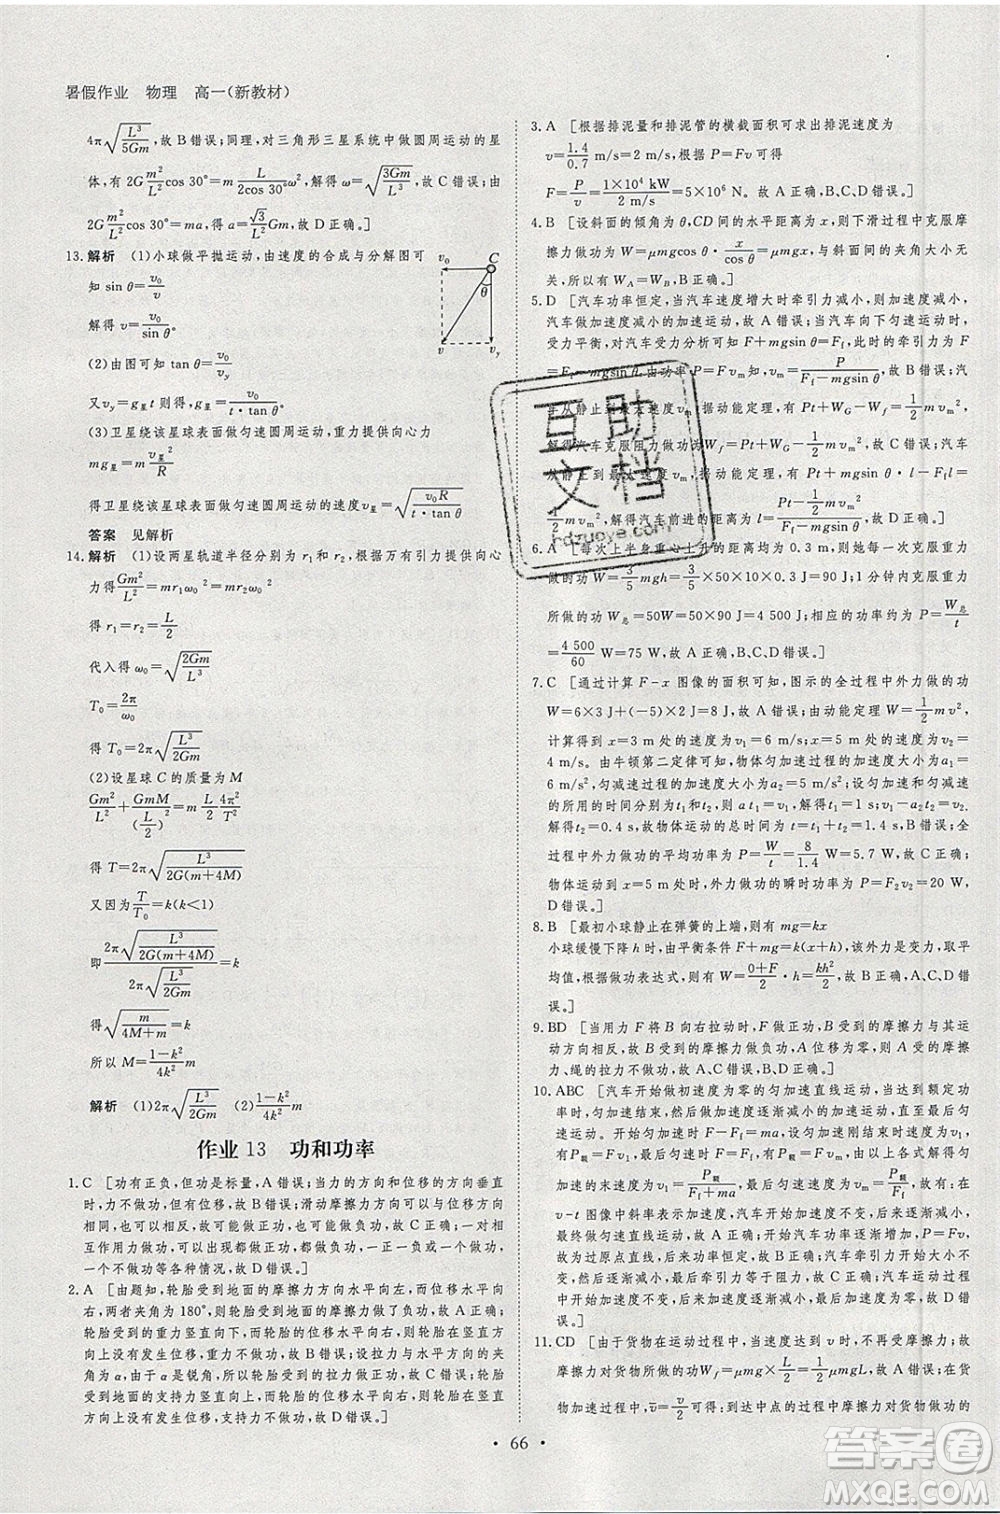 暑假作业 物理 高一(新教材)
4π√(L³/5Gm),故B错误;同理,对三角形三星系统中做圆周运动的星
体,有 2G m²/L² cos 30°=m L/(2cos 30°) ω²,得 ω=√(3Gm/L³),故C错误;由
2G m²/L² cos 30°=ma,得 a=√3 Gm/L²,故D正确。
13.解析 (1)小球做平抛运动,由速度的合成与分解图可
知 sin θ=v₀/v
解得 v=v₀/sin θ。
(2)由图可知 tan θ=v₀/v_y
又v_y=g星t 则得,g星=v₀/(t·tan θ)
(3)卫星绕该星球表面做匀速圆周运动,重力提供向心力
mg星=m v星²/R
得卫星绕该星球表面做匀速圆周运动的速度v星=√(v₀R/(t·tan θ))
答案 见解析
v₀ C
θ
v v_y
14.解析 (1)设两星轨道半径分别为 r₁ 和 r₂,根据万有引力提供向心
力得 Gm²/L²=mr₁ω₀²=mr₂ω₀²
得 r₁=r₂=L/2
代入得 ω₀=√(2Gm/L³)
T₀=2π/ω₀
得 T₀=2π√(L³/2Gm)
(2)设星球 C 的质量为 M
Gm²/L²+GmM/(L/2)²=m L/2 4π²/T²
得 T=2π√(L³/2G(4M+m))
又因为 T/T₀=k(k<1)
即 2π√(L³/2G(4M+m))/2π√(L³/2Gm)=k
得√(m/(4M+m))=k
所以 M=(1-k²)/4k² m
解析 (1)2π√(L³/2Gm) (2)(1-k²)/4k² m
作业 13 功和功率
1.C [功有正负,但功是标量,A错误;当力的方向和位移的方向垂直
时,力不做功,但有位移,故B错误;滑动摩擦力方向可以与位移方向
相同,也可以相反,故可能做正功,也可能做负功,C正确;一对相
互作用力做功,可以出现都做正功,都做负功,一正一负或一个做
功,一个不做功等各种情况,故D错误。]
2.A [由题知,轮胎受到地面的摩擦力方向水平向左,而位移水平向
右,两者夹角为180°,则轮胎受到地面的摩擦力做了负功,A正确;
轮胎受到的重力竖直向下,而轮胎的位移水平向右,则轮胎在竖直
方向上没有发生位移,重力不做功,B错误;设拉力与水平方向的夹
角为α,由于α是锐角,则轮胎受到的拉力做正功,C错误;轮胎受
到地面的支持力竖直向上,而轮胎的位移水平向右,则轮胎在竖直
方向上没有发生位移,支持力不做功,D错误。]
3.A [根据排泥量和排泥管的横截面积可求出排泥速度为
v=1.4/0.7 m/s=2 m/s。根据 P=Fv 可得
F=P/v=1×10⁴ kW/2 m/s=5×10⁶ N。故A正确,B、C、D错误。]
4.B [设斜面的倾角为θ,CD间的水平距离为x,则下滑过程中克服摩
擦力做功为 W=μmgcos θ·x/cos θ=μmgx,与斜面间的夹角大小无
关。所以 W_A=W_B,B正确。]
5.D [汽车功率恒定,当汽车速度增大时牵引力减小,则加速度减小,
汽车做加速度减小的加速运动,故A错误;当汽车向下匀速运动时,
受力平衡,对汽车受力分析可知 F+mgsin θ=F_f,此时的牵引力 F
=F_f-mgsin θ,故B错误;由功率 P=Fv_m知,v_m=P/(F_f-mgsin θ);汽
车从静止到最大速度v_m过程中,据动能定理得 Pt+W_G-W_f=½mv_m²,
解得汽车克服阻力做功为W_f=Pt+W_G-½mv_m²,故C错误;汽车从
静止到最大速度v_m过程中,据动能定理,有 Pt+mglsin θ-F_fl=
½mv_m²,解得汽车前进的距离为 l=(Pt-½mv_m²)/(F_f-mgsin θ),故D正确。]
6.A [每次上半身重心上升的距离均为0.3 m,则她每一次克服重力
做的功 W=3/5 mgh=3/5×50×10×0.3 J=90 J;1分钟内克服重力
所做的功 W总=50W=50×90 J=4 500 J;相应的功率约为 P=W总/t
=4 500/60 W=75 W,A正确,B、C、D错误。]
7.C [通过计算 F-x 图像的面积可知,图示的全过程中外力做的功
W=6×3 J+(-5)×2 J=8 J,故A错误;由动能定理可知,W=½mv²,
计算得到在 x=3 m处的速度为v₁=6 m/s;x=5 m处的速度为v₂
=4 m/s;由牛顿第二定律可知,物体匀加速过程的加速度大小a₁=
6 m/s²,匀减速过程的加速度大小a₂=5 m/s²;设匀加速和匀减速
的所用的时间分别为t₁和t₂,则 a₁t₁=v₁,v₁-a₂t₂=v₂,解得t₁=1 s,
t₂=0.4 s,故物体运动的总时间为 t=t₁+t₂=1.4 s,B错误;全过
程中外力做功的平均功率为 P=W/t=8/1.4 W=5.7 W,C正确;
物体运动到 x=5 m处时外力做功的瞬时功率为 P=F₂v₂=20 W,
D错误。]
8.B [最初小球静止在弹簧的上端,则有 mg=kx
小球缓慢下降h时,由平衡条件F+mg=k(x+h),该外力是变力,取平
均值,根据做功表达式,则有 W=(0+F)/2·h=kh²/2,故B正确,A、C、D错
误。]
9.BD [当用力F将B向右拉动时,B受到的摩擦力的方向与其运
动方向相反,故B受到的摩擦力做负功,A位移为零,则A受的摩擦
力、绳的拉力不做功,故A、C错误,B、D正确。]
10.ABC [汽车开始做初速度为零的匀加速直线运动,当达到额定功
率时,匀加速结束,然后做加速度逐渐减小的加速运动,直至最后匀速
运动。开始匀加速时 F-F_f=ma,设匀加速刚结束时速度为v₁,
有P额=Fv₁,最后匀速时 F=F_f,有P额=F_fv_m,由以上各式解得匀加
速的末速度为v₁=P额/(F_f+ma),最后匀速速度为 v_m=P额/F_f,故A正确;在
v-t 图像中斜率表示加速度,汽车开始加速度不变,后来逐渐减小,
故B正确;汽车牵引力开始不变,功率逐渐增加,P=Fv=Fat,
故为过原点直线,后来功率恒定,故C正确;汽车牵引力开始大小不
变,然后逐渐减小,最后匀速运动时牵引力等于阻力,故D错误。]
11.CD [由于货物在运动过程中,当速度达到v时,不再受摩擦力,故
摩擦力对货物所做的功W_f=μmg×L/2=½μmgL,故A错误;在货
物加速过程中,v̄=v/2 可得;到达中点过程中摩擦力对货物做功的
66
互助文档
hdzuoye.com
答案圈
MXQE.COM